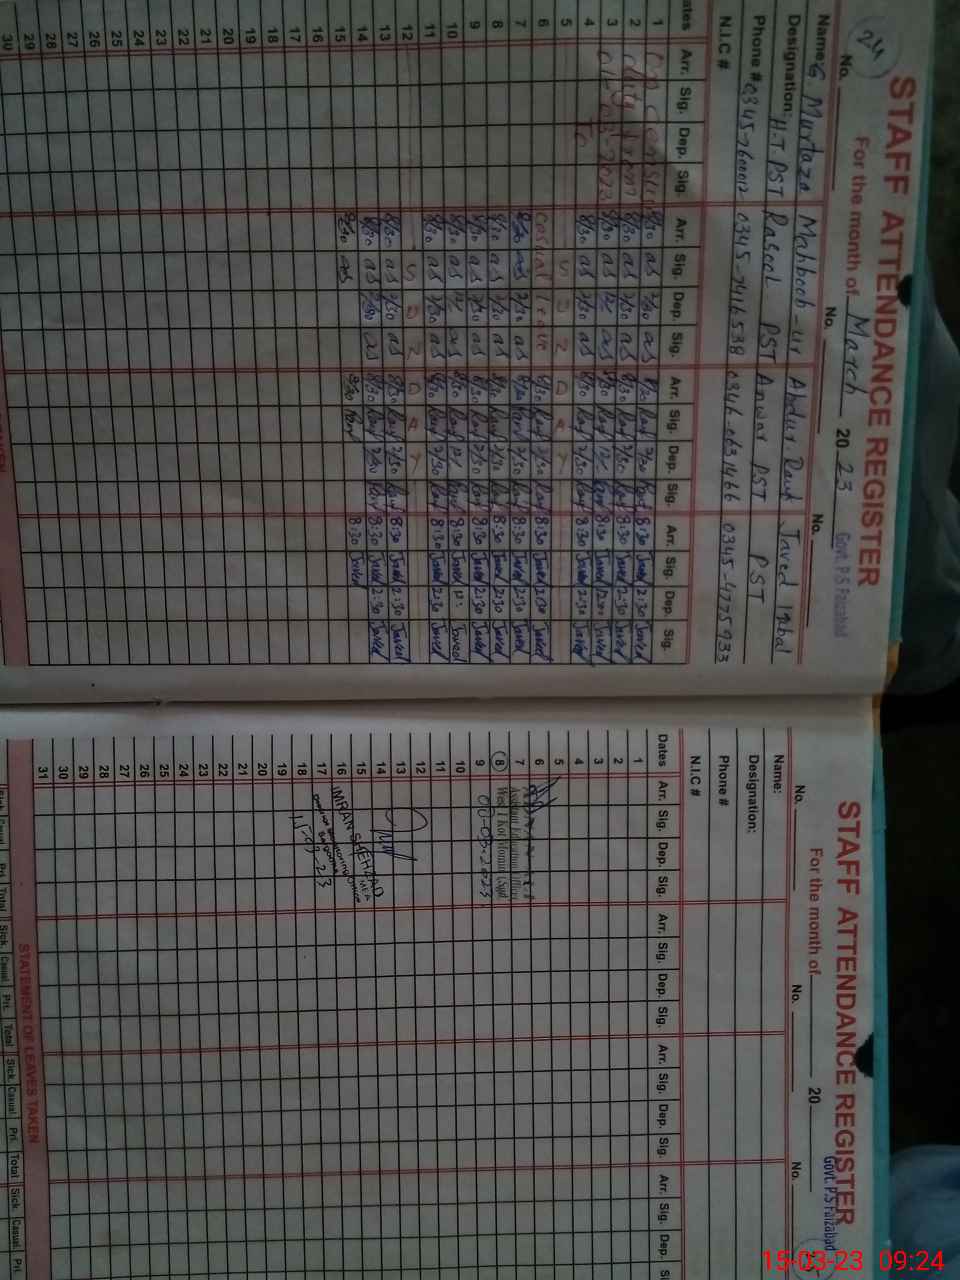 24
STAFF ATTENDANCE REGISTER
For the month of March 2023 Govt. P.S Faizabad
No. No. No.
Name: G Murtaza Mahboob-ur Abdur.Rauf Javed Iqbal
Designation: H.T.PST Rasool PST Anwar PST PST
Phone # 0345-7600012 0345-7416538 0346-0631466 0345-4775933
N.I.C #
Dates Arr. Sig. Dep. Sig. Arr. Sig. Dep. Sig. Arr. Sig. Dep. Sig. Arr. Sig. Dep. Sig.
1 On Census 8/30 as 2/30 as 8/30 Rauf 2/30 Rauf 8:30 Javed 2:30 Javed
2 duty from 8/30 as 2/30 as 8/30 Rauf 2/30 Rauf 8:30 Javed 2:30 Javed
3 8/30 as 12 as 8/30 Rauf 12 Rauf 8:30 Javed 12:00 Javed
4 To 8/30 as 2/30 as 8/30 Rauf 2/30 Rauf 8:30 Javed 2:30 Javed
5 S U N D A Y
6 Casual leave 8/30 Rauf 2/30 Rauf 8:30 Javed 2:30 Javed
7 8/30 as 2/30 as 8/30 Rauf 2/30 Rauf 8:30 Javed 2:30 Javed
8 8/30 as 2/30 as 8/30 Rauf 2/30 Rauf 8:30 Javed 2:30 Javed
9 8/30 as 2/30 as 8/30 Rauf 2/30 Rauf 8:30 Javed 2:30 Javed
10 8/30 as 12 as 8/30 Rauf 12 Rauf 8:30 Javed 12: Javed
11 8/30 as 2/30 as 8/30 Rauf 2/30 Rauf 8:30 Javed 2:30 Javed
12 S U N D A Y
13 8/30 as 2/30 as 8/30 Rauf 2/30 Rauf 8:30 Javed 2:30 Javed
14 8/30 as 2/30 as 8/30 Rauf 2/30 Rauf 8:30 Javed 2:30 Javed
15 8/30 as 8/30 Rauf 8:30 Javed
16
17
18
19
20
21
22
23
24
25
26
27
28
29
30
STAFF ATTENDANCE REGISTER
For the month of 20 Govt. P.S Faizabad
No. No. No.
Name:
Designation:
Phone #
N.I.C #
Dates Arr. Sig. Dep. Sig. Arr. Sig. Dep. Sig. Arr. Sig. Dep. Sig. Arr. Sig. Dep.
1
2
3
4
5
6
7 Assistant Education Officer
8
9 08-03-2023
10
11
12
13
14
15 IMRAN SHEHZAD
16
17
18 15-03-23
19
20
21
22
23
24
25
26
27
28
29
30
31
STATEMENT OF LEAVES TAKEN
Sick. Casual Pri. Total Sick. Casual Pri. Total Sick. Casual Pri. Total Sick. Casual Pri.
15-03-23 09:24